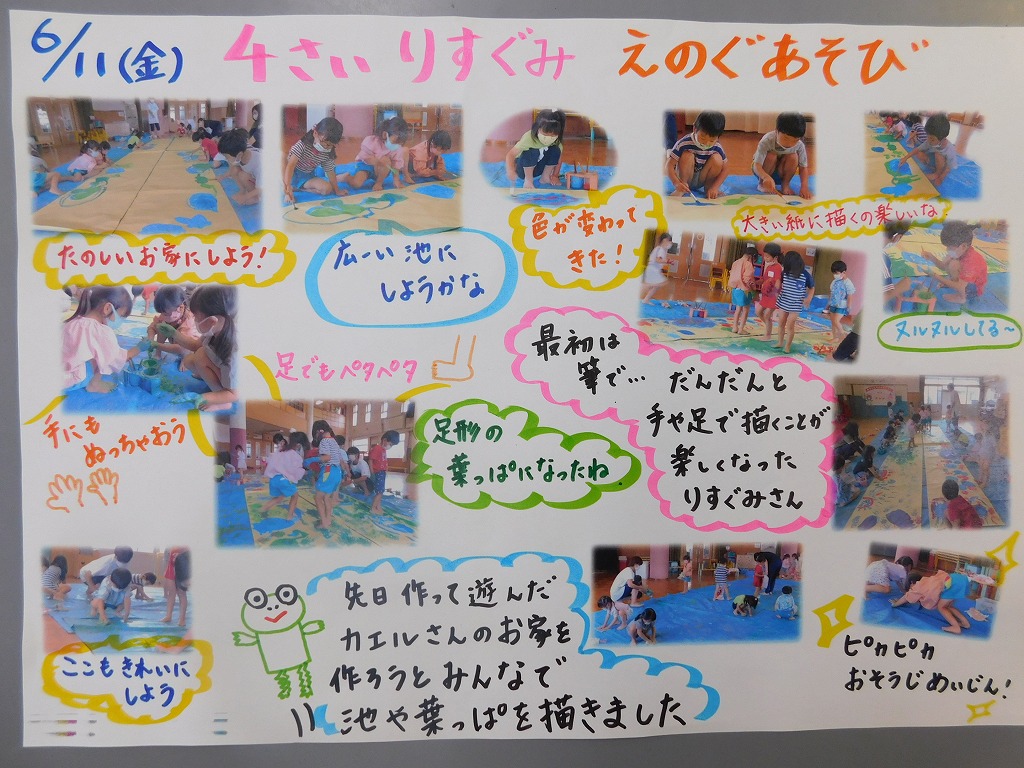 6/11(金) 4さい りすぐみ えのぐあそび
たのしいお家にしよう!
広ーい池に
しようかな
色が変わって
きた!
大きい紙に描くの楽しいな
ヌルヌルしてる〜
手にも
ぬっちゃおう
足でもペタペタ
足形の
葉っぱになったね
最初は
筆で… だんだんと
手や足で描くことが
楽しくなった
りすぐみさん
ここもきれいに
しよう
先日作って遊んだ
カエルさんのお家を
作ろうとみんなで
池や葉っぱを描きました
ピカピカ
おそうじめいじん!